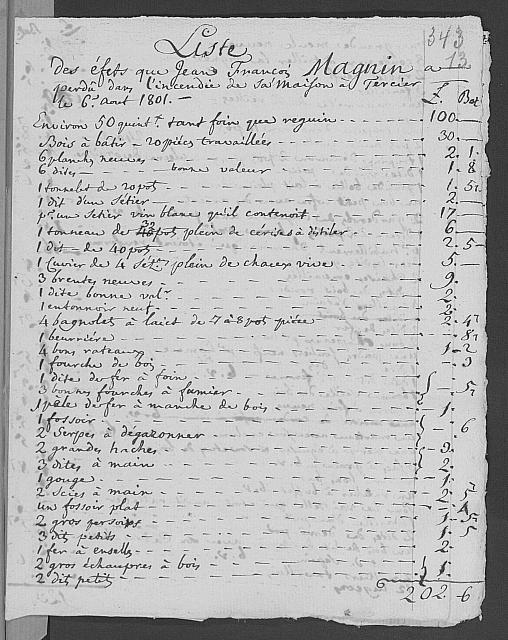 343
13
Liste
Des efets que Jean François Magnin a
perdû dans l'incendie de Sa Maison à Tercier
le 6.e Aout 1801.—
£. Bat
Environ 50 quint.x tant foin que reguin — 100.—
Bois à bâtir — 20 piéces travaillées — 30.—
6 planches neuves — 2. 1.
6 dites — bonne valeur — 1. 8
1 tonnelet de 20 pots — 1. 5
1 dit d'un Sétier — 2.—
p.r un Setier vin blanc qu'il contenoit — 17—
1 tonneau de 30 pots plein de cérises à distiler — 6.
1 dit — de 40 pots — 2. 5
1 Cuvier de 4 Set.rs plein de chaux vive — 5.
3 brentes neuves — 9.
1 dite bonne val.r — 2.
1 entonnoir neuf — 2.
4 bagnolets à laict de 7 à 8 pots piéce — 2. 4
1 beurriére — 8
4 bons rateaux — 1. 2
1 fourche de bois — 3
1 dite de fer à foin
3 bonnes fourches à fumier — 5
1 pèle de fer à manche de bois — 1.
1 fossoir
2 Serpes à dégazonner — 6
2 grandes haches — 3.
3 dites à main — 2.
1 gouge — 1.
2 Scies à main — 2. 5
un fossoir plat
2 gros persoirs — 1. 5
3 dit petits — 1. 5
1 fer à — 2.
2 gros échaupres à bois
2 dit petit — 1.
202. 6